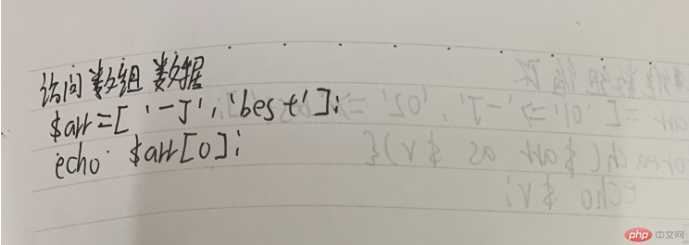 访问数组数据
$arr=['一J','best'];
echo $arr[0];
php 中文网